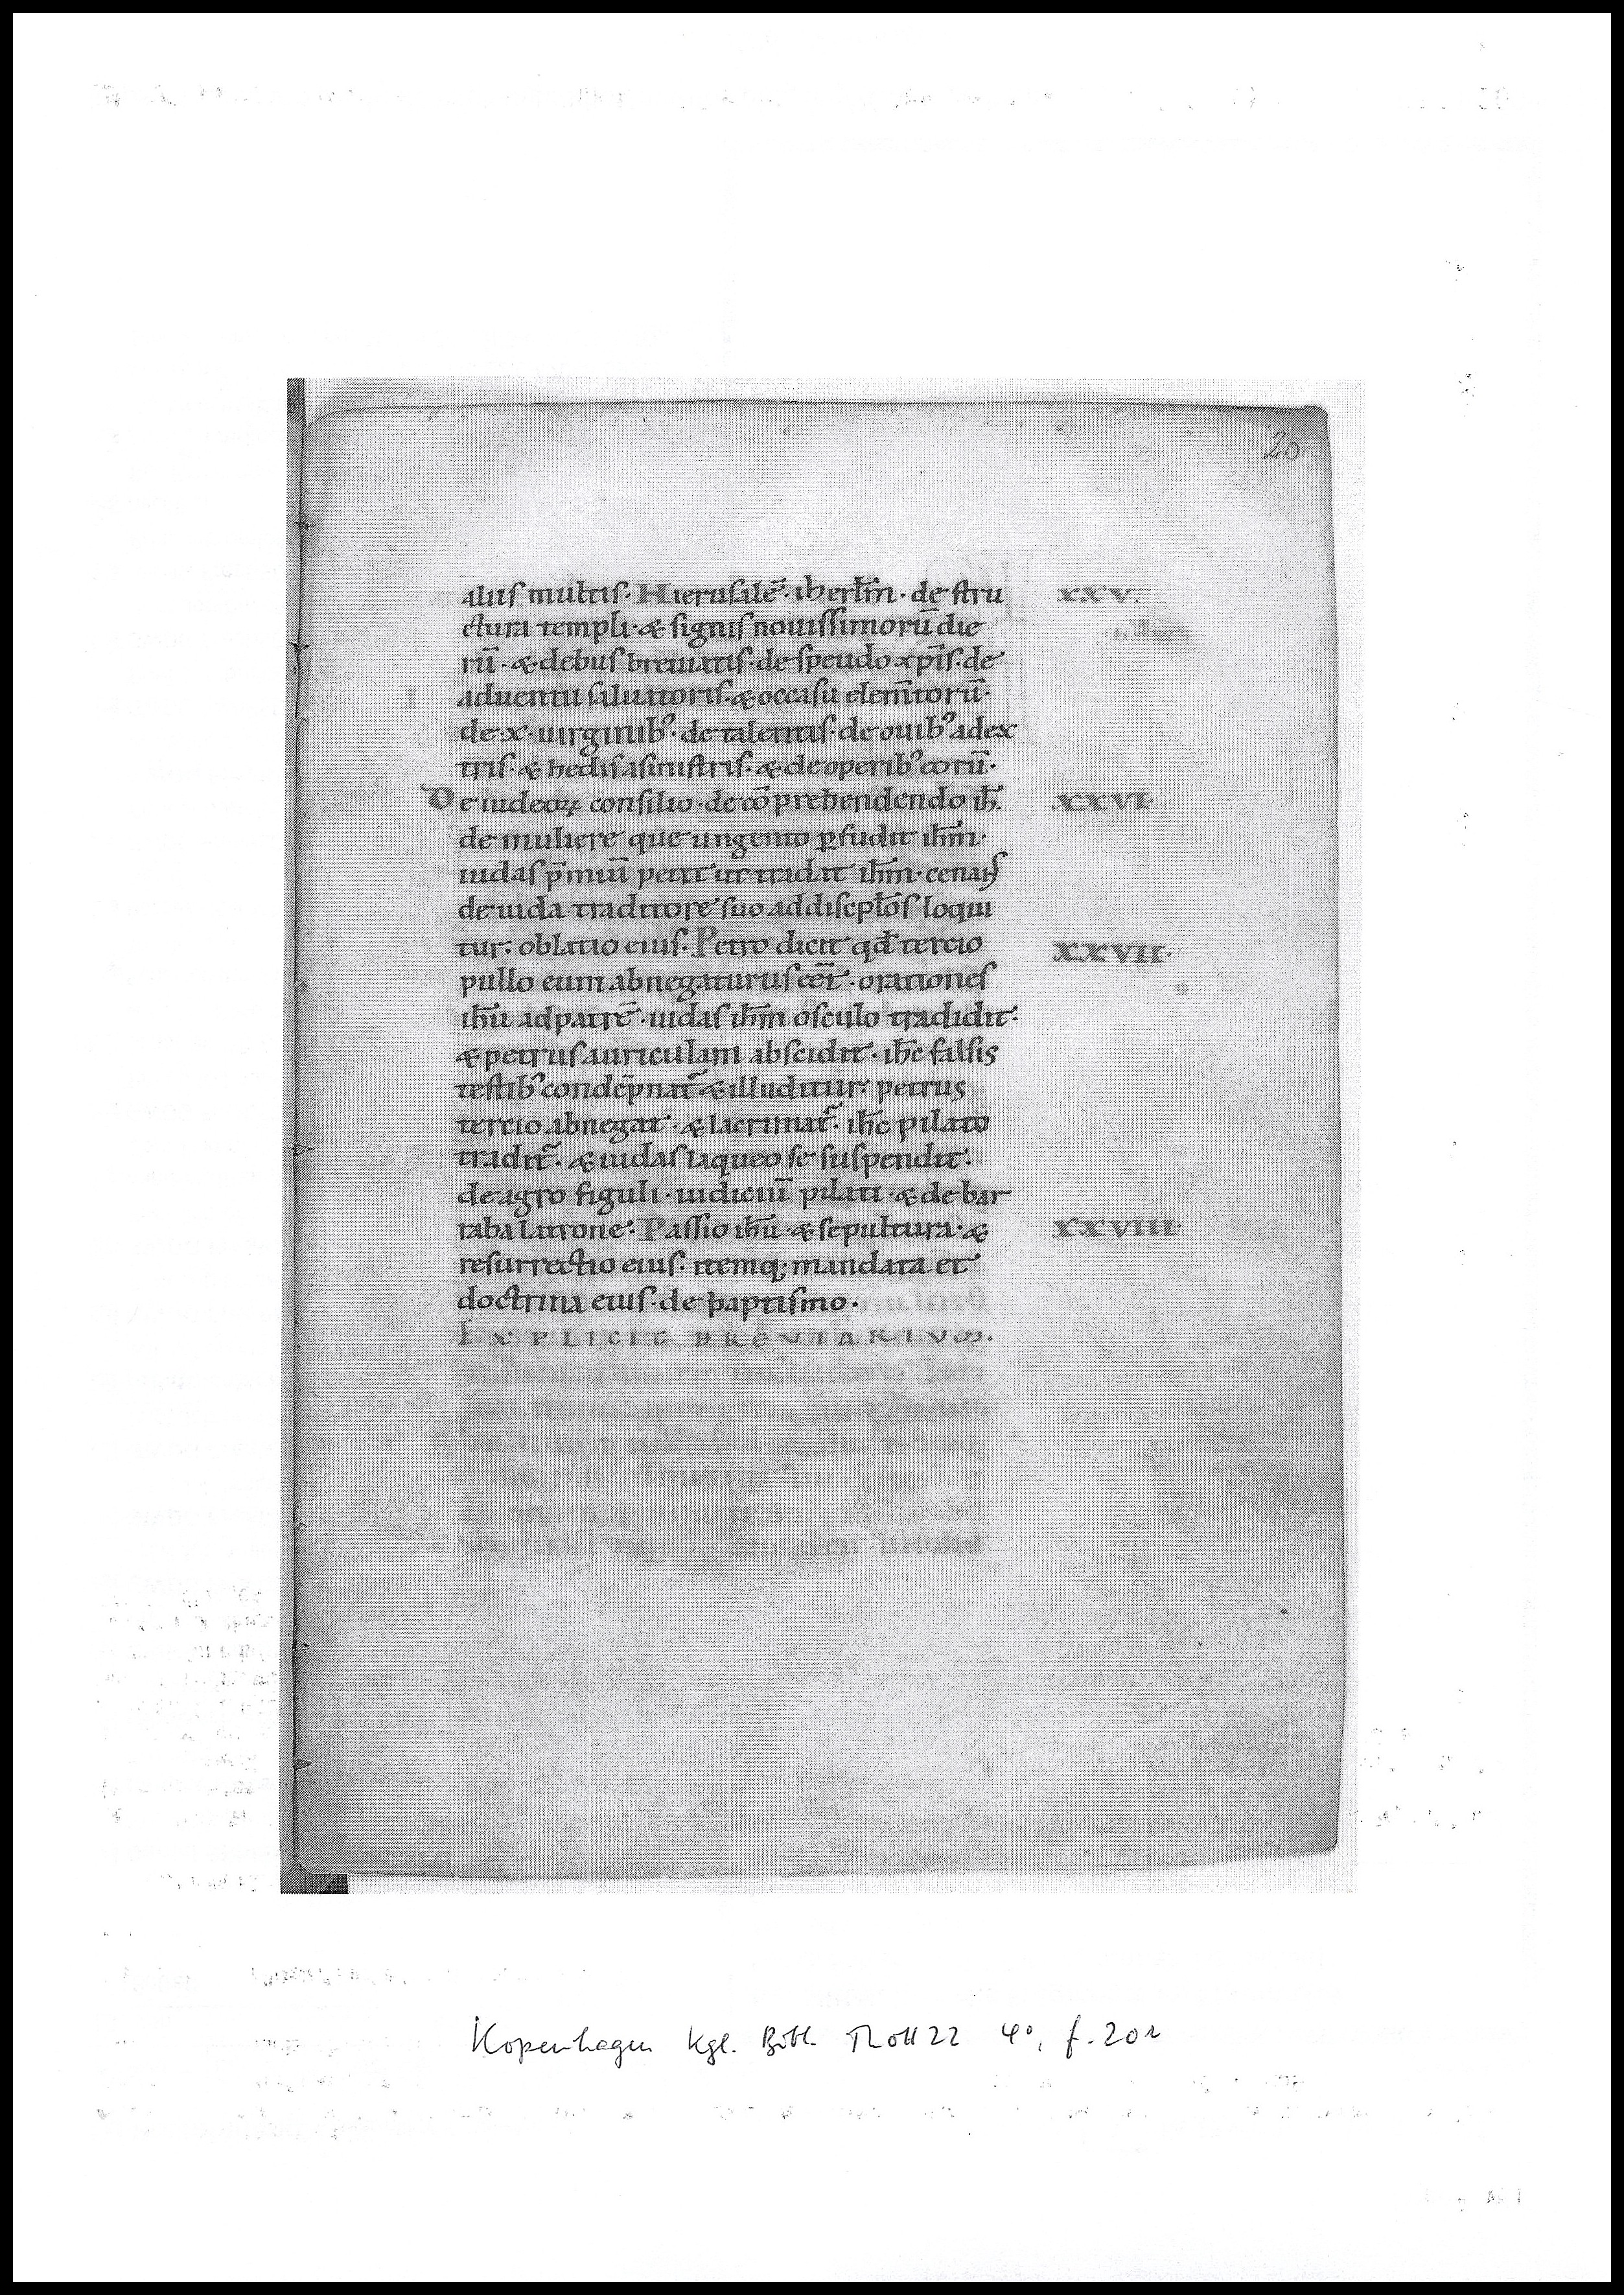 20
aliis multis. Hierusalē. ih̄erl̄m. de stru XXV.
ctura templi. & signis nouissimorū die
rū. & debus breuiatis. de speudo xp̄is. de
aduentu saluatoris. & occasu elem̄torū.
de x. uirginib; de talentis. de ouib; adex
tris. & hedis asinistris. & de operib; eorū.
De iudeoꝝ consilio. de cōprehendendo ih̄. XXVI.
de muliere que ungento ꝑfudit ih̄m.
iudas p̄miū petit ut tradat ih̄m. cenans
de iuda traditore suo addiscpl̄os loqui
tur. oblatio eius. Petro dicit qd̄ tercio XXVII.
pullo eum abnegaturus eēt. orationes
ih̄u ad patrē. iudas ih̄m osculo tradidit.
& petrus auriculam abscidit. ih̄c falsis
testib; condēpnat̄ & illuditur. petrus
tercio abnegat. & lacrimat̄. ih̄c pilato
tradit̄. & iudas laqueo se suspendit.
de agro figuli. iudiciū pilati. & de bar
raba latrone. Passio ih̄u & sepultura. & XXVIII.
resurrectio eius. itemq; mandata et
doctrina eius. de baptismo.
EXPLICIT BREVIARIVM.
Kopenhagen Kgl. Bibl. Thott 22 4°, f. 20r